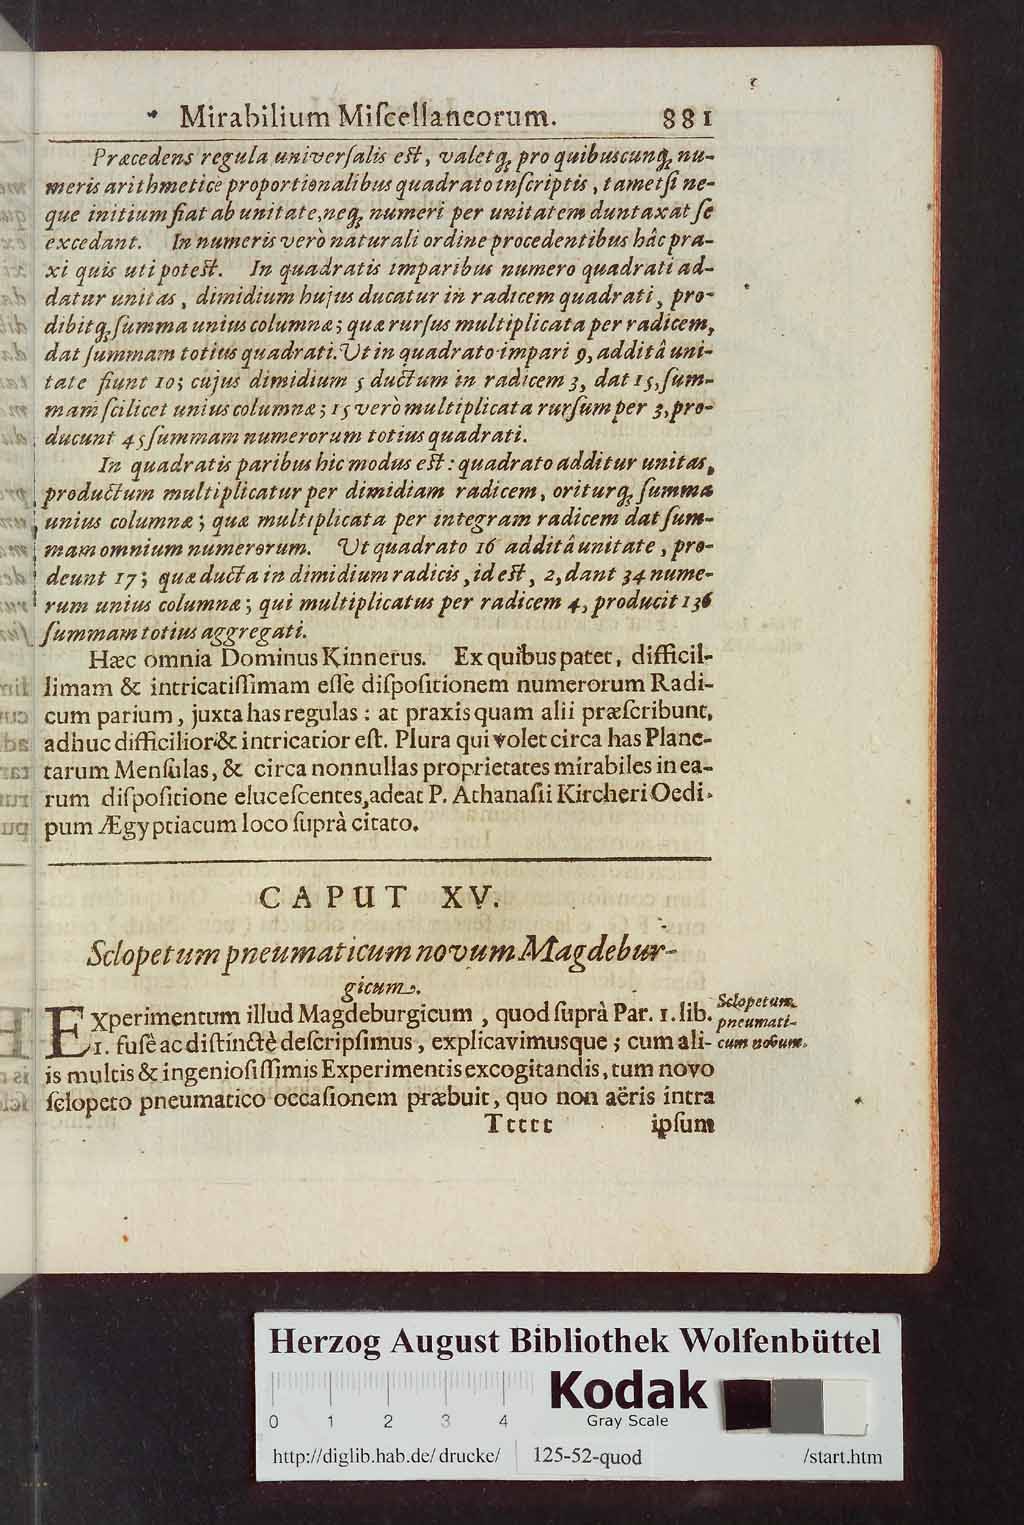 Mirabilium Miſcellaneorum. 881
Præcedens regula univerſalis eſt, valetq; pro quibuscunq; nu-
meris arithmetice proportionalibus quadrato inſcriptis, tametſi ne-
que initium fiat ab unitate, neq; numeri per unitatem duntaxat ſe
excedant. In numeris verò naturali ordine procedentibus hâc pra-
xi quis uti poteſt. In quadratis imparibus numero quadrati ad-
datur unitas, dimidium hujus ducatur in radicem quadrati, pro-
dibitq; ſumma unius columnæ; quæ rurſus multiplicata per radicem,
dat ſummam totius quadrati. Ut in quadrato impari 9, additâ uni-
tate fiunt 10; cujus dimidium 5 ductum in radicem 3, dat 15, ſum-
mam ſcilicet unius columnæ; 15 verò multiplicata rurſum per 3, pro-
ducunt 45 ſummam numerorum totius quadrati.
In quadratis paribus hic modus eſt: quadrato additur unitas,
productum multiplicatur per dimidiam radicem, oriturq; ſumma
unius columnæ; quæ multiplicata per integram radicem dat ſum-
mam omnium numerorum. Ut quadrato 16 additâ unitate, pro-
deunt 17; quæ ducta in dimidium radicis, id eſt, 2, dant 34 nume-
rum unius columnæ; qui multiplicatus per radicem 4, producit 136
ſummam totius aggregati.
Hæc omnia Dominus Kinnerus. Ex quibus patet, difficil-
limam & intricatiſſimam eſſe diſpoſitionem numerorum Radi-
cum parium, juxta has regulas: at praxis quam alii præſcribunt,
adhuc difficilior & intricatior eſt. Plura qui volet circa has Plane-
tarum Menſulas, & circa nonnullas proprietates mirabiles in ea-
rum diſpoſitione eluceſcentes, adeat P. Athanaſii Kircheri Oedi-
pum Ægyptiacum loco ſuprà citato.
CAPUT XV.
Sclopetum pneumaticum novum Magdebur-
gicum.
Experimentum illud Magdeburgicum, quod ſuprà Par. 1. lib.
1. fuſè ac diſtinctè deſcripſimus, explicavimusque; cum ali-
is multis & ingenioſiſſimis Experimentis excogitandis, tum novo
ſclopeto pneumatico occaſionem præbuit, quo non aëris intra
Sclopetum
pneumati-
cum novum.
Ttttt ipſum
Herzog August Bibliothek Wolfenbüttel
0 1 2 3 4
Kodak
Gray Scale
http://diglib.hab.de/drucke/ 125-52-quod /start.htm